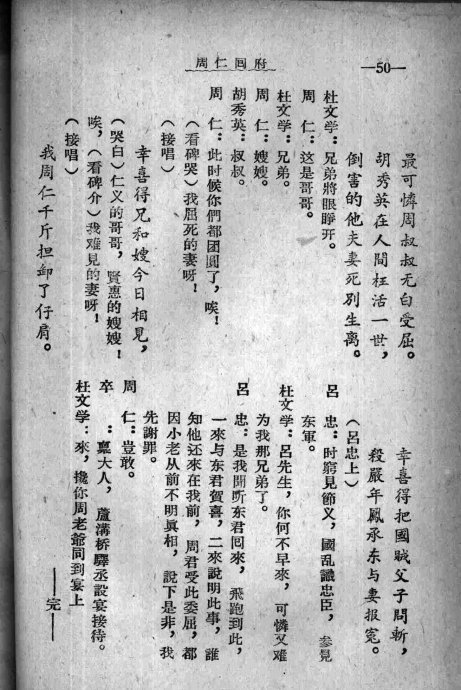 周仁囘府
—50—
最可憐周叔叔无白受屈。
胡秀英在人間枉活一世，
倒害的他夫妻死別生离。
杜文学：兄弟將眼睜开。
周　仁：这是哥哥。
杜文学：兄弟。
周　仁：嫂嫂。
胡秀英：叔叔。
周　仁：此时候你們都团圓了，唉！
（看碑哭）我屈死的妻呀！
（接唱）
幸喜得兄和嫂今日相見，
（哭白）仁义的哥哥，賢惠的嫂嫂！
唉，（看碑介）我难見的妻呀！
（接唱）
我周仁千斤担卸了仔肩。
幸喜得把國賊父子問斬，
殺嚴年鳳承东与妻报冤。
（呂忠上）
呂　忠：时窮見節义，國乱識忠臣，参見
东軍。
杜文学：呂先生，你何不早來，可憐又难
为我那兄弟了。
呂　忠：是我聞听东君囘來，飛跑到此，
一來与东君賀喜，二來說明此事，誰
知他还來在我前，周君受此委屈，都
因小老从前不明眞相，說下是非，我
先謝罪。
周　仁：豈敢。
卒　：稟大人，蘆溝桥驛丞設宴接待。
杜文学：來，攙你周老爺同到宴上
——完——